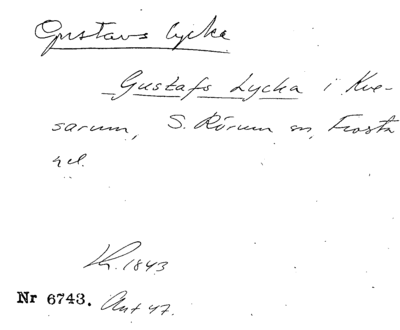 Gustavs lycka
Gustafs Lycka i Kve-
sarum, S. Rörum sn, Frosta
hd.
Lh. 1843
Nr 6743. Ant 47.